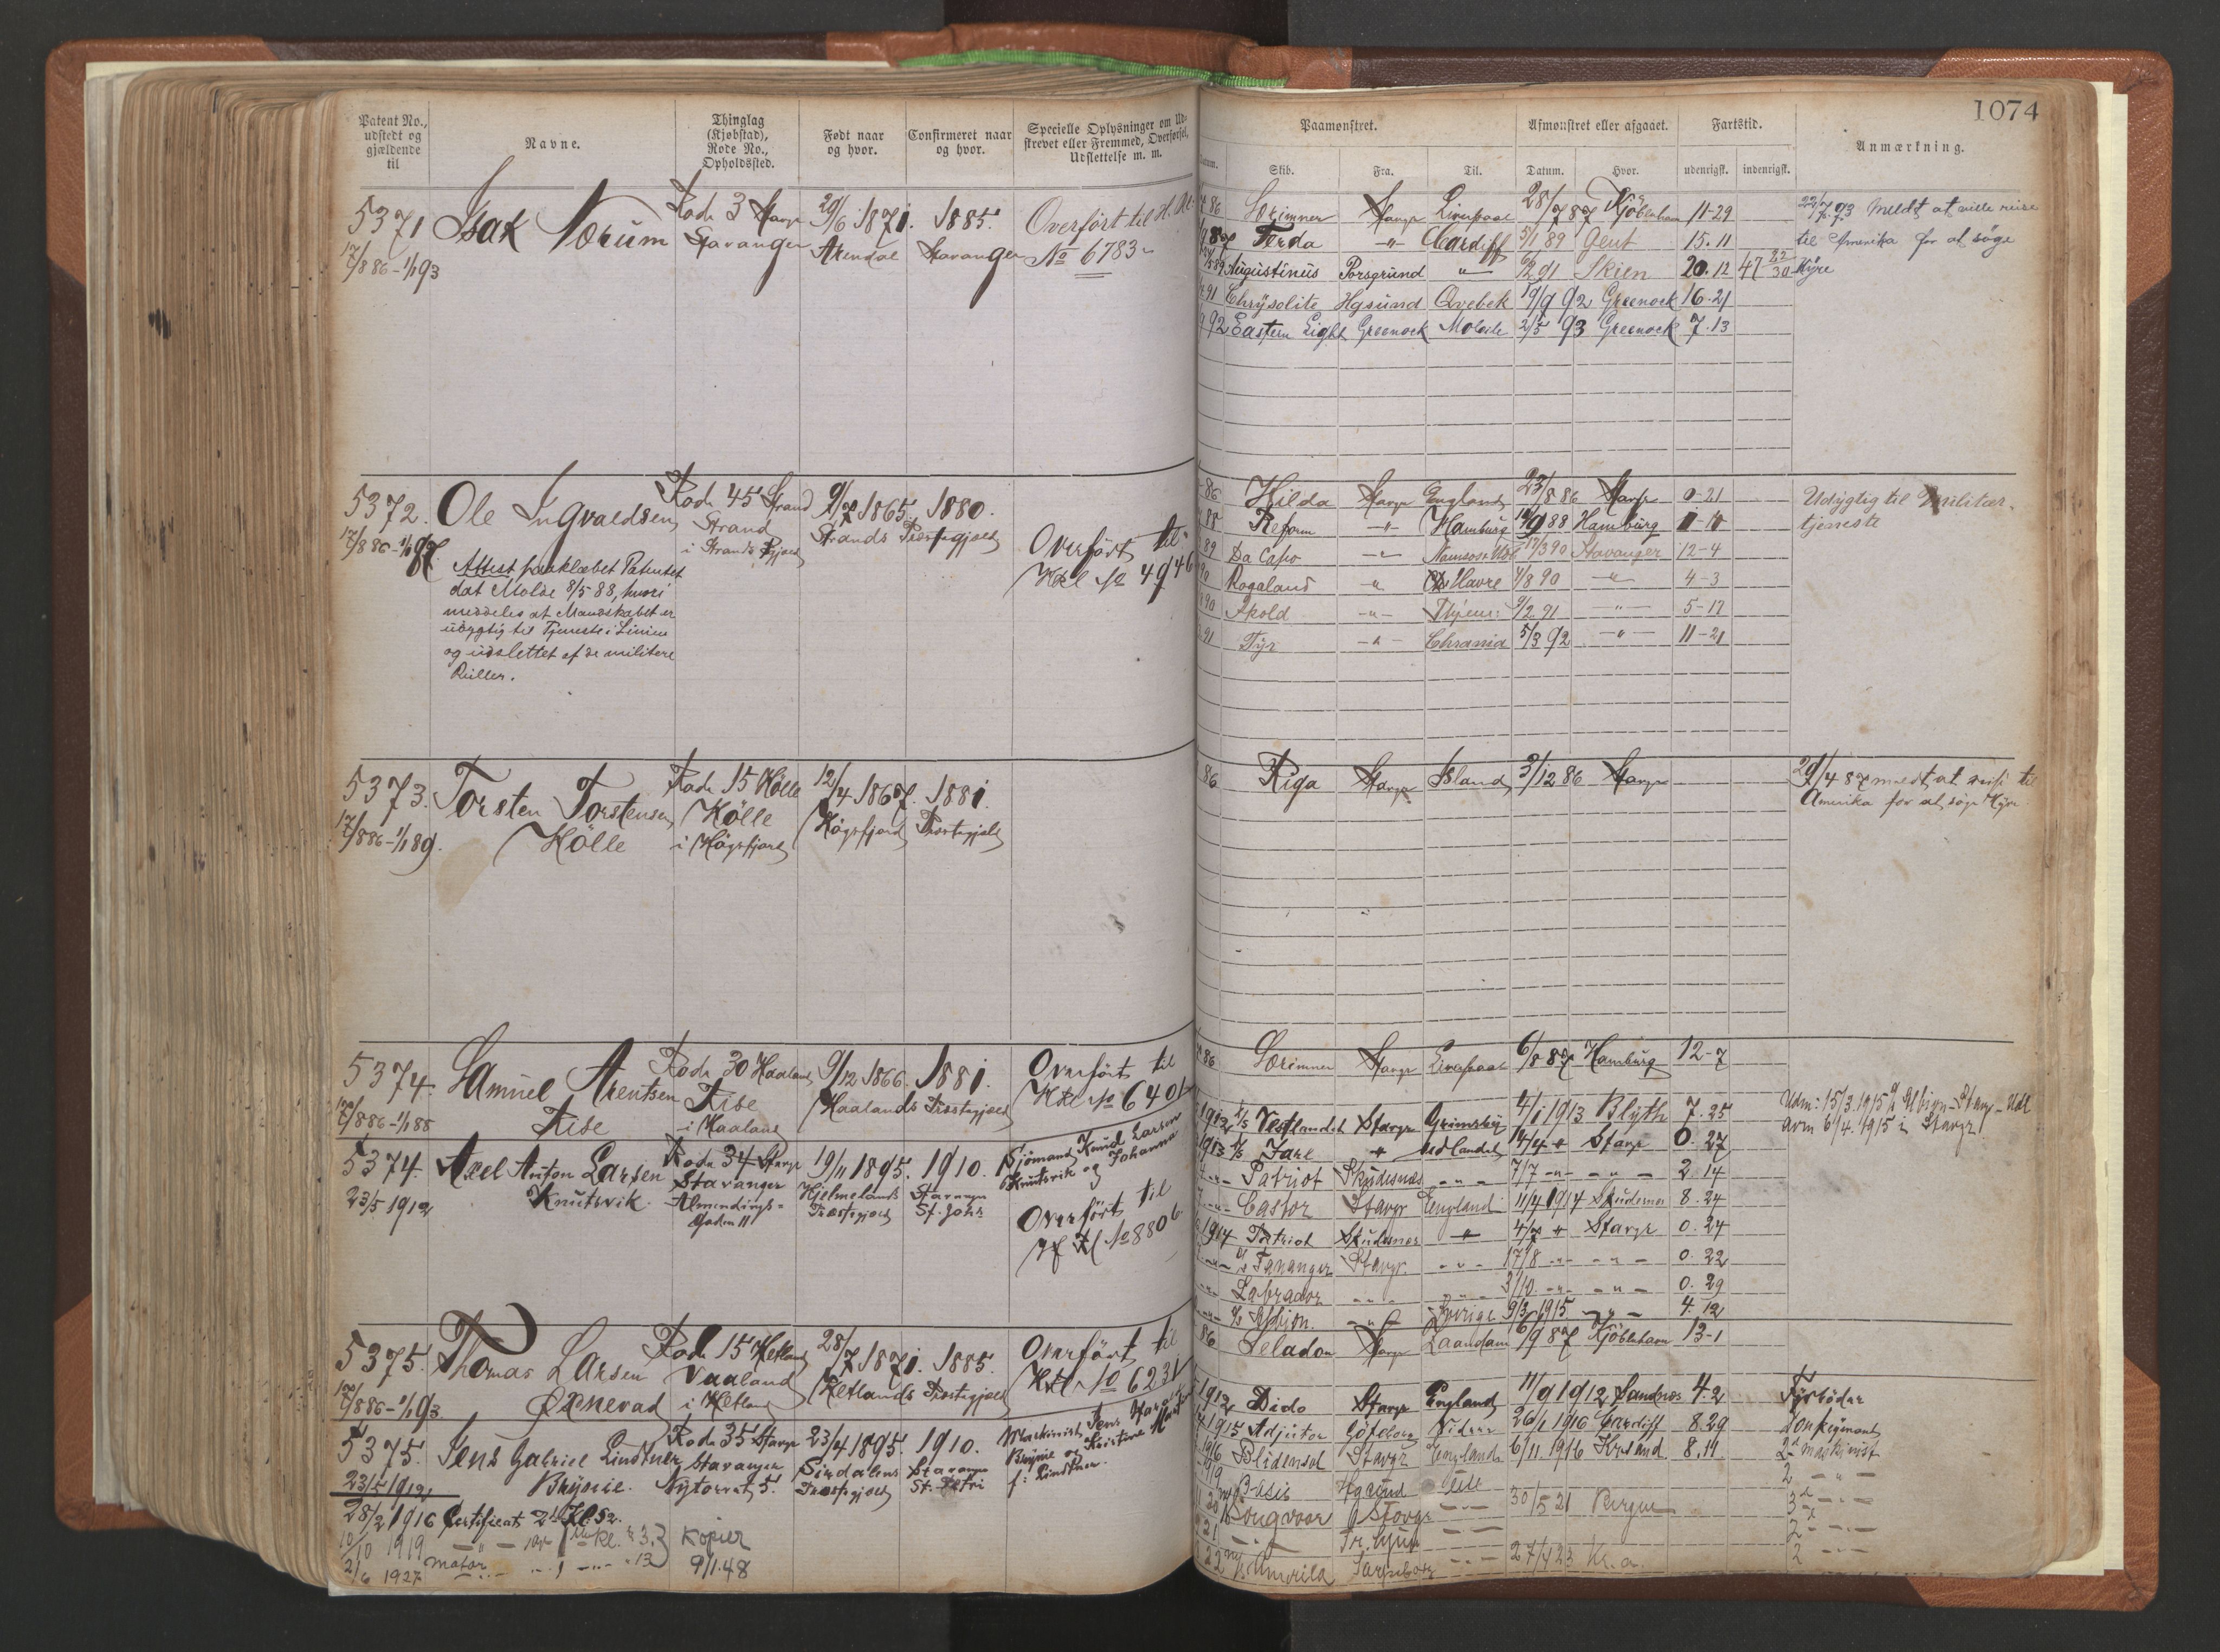 1074
Patent No., udstedt og gjældende til
Navne.
Thinglag (Kjøbstad), Rode No., Opholdssted.
Født naar og hvor.
Confirmeret naar og hvor.
Specielle Oplysninger om Udstrevet eller Fremmed, Overførsel, Udslettelse m. m.
Paamønstret.
Afmønstret eller afgaaet.
Fartstid.
Anmærkning.
Skib.
Fra.
Til.
Datum.
Hvor.
udenrigsk.
indenrigsk.
5371 Isak Nærum Rode 3 Stavgr 29/6 1871. 1885. Overført til H. Rl.
17/8 86-1/1 93 Stavanger Arendal Stavanger No 6783
86 Særimner Stavgr Liverpool 28/7 87 Kjöbenhavn 11-29
87 Terda -"- Cardiff 5/1 89 Gent 15. 11
89 Augustinus Porsgrund -"- 6/2 91 Skien 20. 12 47 22/30
91 Chrysolite Hgsund Qvebek 19/9 92 Greenock 16-21
92 Eastern Light Greenock Mobile 2/5 93 Greenock 7. 13
22/7 93 Meldt at ville reise
til Amerika for at söge
Hyre
5372. Ole Ingvaldsen Rode 45 Strand 9/7 1865. 1880.
17/8 86-1/1 87 Strand Strands Præstegjæld
i Strands Pgjæld
Overført til
Hrl No 4946
Attest paaklæbet Patentet
dat Molde 8/5 88, hvori
meddeles at Mandskabet er
udygtig til Tjeneste i Linien
og udslettet af de militære
Ruller.
86 Hilda Stavgr England 23/8 86 Stavgr 0-21
88 Reform -"- Hamburg 9/88 Hamburg
89 Da Capo -"- 17/3 90 Stavanger 12-4
90 Rogaland -"- Havre 4/8 90 -"- 4-3
90 Skold -"- 9/2 91 -"- 5-17
91 Tyr -"- Chrania 5/3 92 -"- 11-21
Udygtig til Militær-
tjeneste
5373. Torsten Torstensen Rode 15 Hölle 12/4 1867. 1881.
17/8 86-1/1 89. Hölle Hölle Högsfjord Præstegjæld
i Högsfjord
86 Riga Stavgr Island 3/12 86 Stavgr
29/4 87 meldt at reise til
Amerika for at söge Hyre
5374. Samuel Arentsen Rode 30 Haaland 9/12 1866. 1881. Overført til
17/8 86-1/1 88 Rise Rise Haalands Præstegjæld Hrl No 6401
i Haaland
86 Særimner Stavgr Liverpool 6/8 87 Hamburg 12-7
5374. Axel Anton Larsen Rode 34 Stavgr 19/11 1895. 1910. Sjömand Knud Larsen
23/5 1912 Knutsvik Stavanger Hjelmelands Stavanger Knutsvik og Johanna
Almendings- Præstegjæld St. Johs
gaden 11
Overført til
H Rl No 8806
1912 Vestlandet Stavgr Grimsby 4/1 1913 Blyth 7. 25
1913 Jarl " Udlandet 14/4 " Stavgr 0. 27
-"- Patriot Skudesnæs -"- 7/7 -"- -"- 2. 14
-"- Castor Stavgr England 11/4 1914 Skudesnes 8. 24
1914 Patriot Skudesnes -"- 4/7 " Stavgr 0. 24
-"- Tananger Stavgr. -"- 17/8 -"- -"- 0. 22
-"- Labrador -"- -"- 3/10 -"- -"- 0. 29
-"- Albion -"- Sverige 9/3 1915 -"- 4. 12
Udm: 15/3 1915 Albion - Stavg - Udl
avm 6/4. 1915 i Stavgr
5375. Thomas Larsen Rode 15 Hetland 28/7 1871. 1885. Overført til
17/8 86-1/1 93 Øxnevad Vaaland Hetlands Præstegjæld Hrl No 6231
i Hetland
86 Seladon Stavgr Zaandam 16/9 87 Kjöbenhavn 13-1
5375. Jens Gabriel Lindtner Rode 35 Stavgr 23/4 1895. 1910. Maskinist Jens
23/5 1912 Brynie. Stavanger Sirdalens Stavanger Brynie og Kristine
Nytorvet 5. Præstegjæld St. Petri f: Lindtner.
28/2 1916 Certificat 2d Kl.
10/10 1919 Kl. 3. Kopier
2/6 1927 motor -"- 13 9/1.48
1912 Dido Stavgr England 11/9 1912 Sandnes 4. 2 Fyrböder
1915 Adjutor Göteborg Videre 26/1 1916 Cardiff 8. 29 Donkeymand
1916 Blidensol Stavgr England 6/11. 1916 Krsand 8. 11 2d maskinist
1919 Basis Hgsund Ude 2 -"-
20 Kongvaar Stavgr -"- 30/5 21 Bergen 3d -"-
21 -"- Fr. hjem -"- 2 -"-
22 Amerika Sarpsborg -"- 27/1 23 Kr.a. 2 -"-